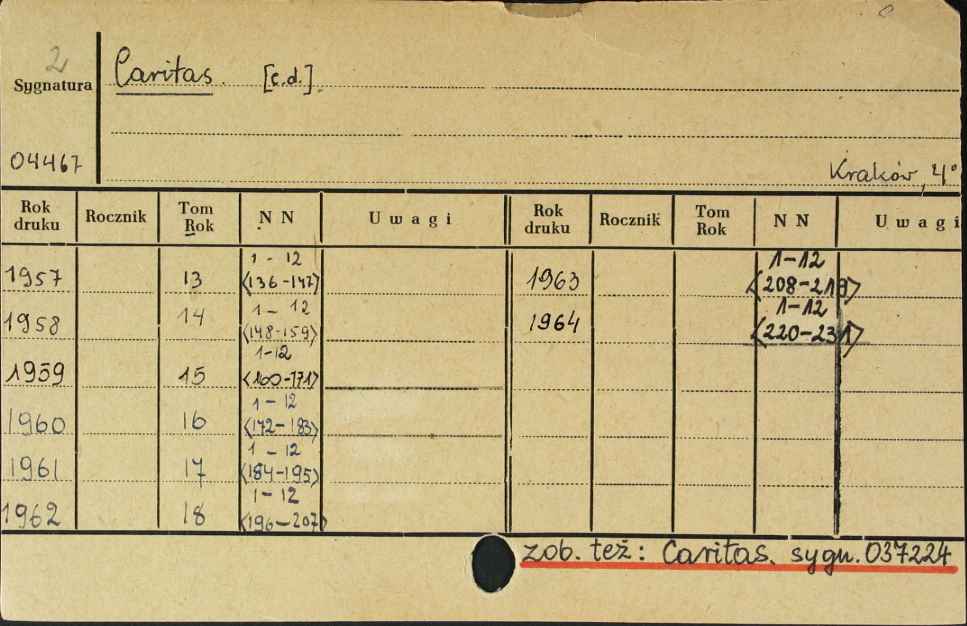 2
Sygnatura
Caritas. [c.d.].
04467
Kraków, 4°
Rok druku Rocznik Tom Rok N N Uwagi Rok druku Rocznik Tom Rok N N Uwagi
1957 13 1-12 <136-147> 1963 1-12 <208-219>
1958 14 1-12 <148-159> 1964 1-12 <220-231>
1959 15 1-12 <160-171>
1960 16 1-12 <172-183>
1961 17 1-12 <184-195>
1962 18 1-12 <196-207>
zob. też: Caritas. sygn. 037224